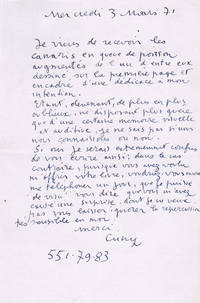 Mercredi 3 Mars 71
Je viens de recevoir les
canaris en queue de poisson
augmentés de l'un d'entre eux
dessiné, sur la première page et
encadré d'une dédicace à mon
intention.
Etant, devenant, de plus en plus
oublieux, ne disposant plus guère
que d'une certaine mémoire visuelle
et auditive, je ne sais pas si nous
nous connaissons ou non.
Si oui je serai extrêmement confus
de vous écrire ainsi; dans le cas
contraire, puisque vous avez voulu
m'offrir votre livre, voudrez-vous
me téléphoner un jour, que je puisse
de visu vous dire que vous m'avez
causé une surprise, dont je ne veux
pas vous laisser ignorer la répercussion
très sensible en moi.
Merci
Cuny
551-79-83